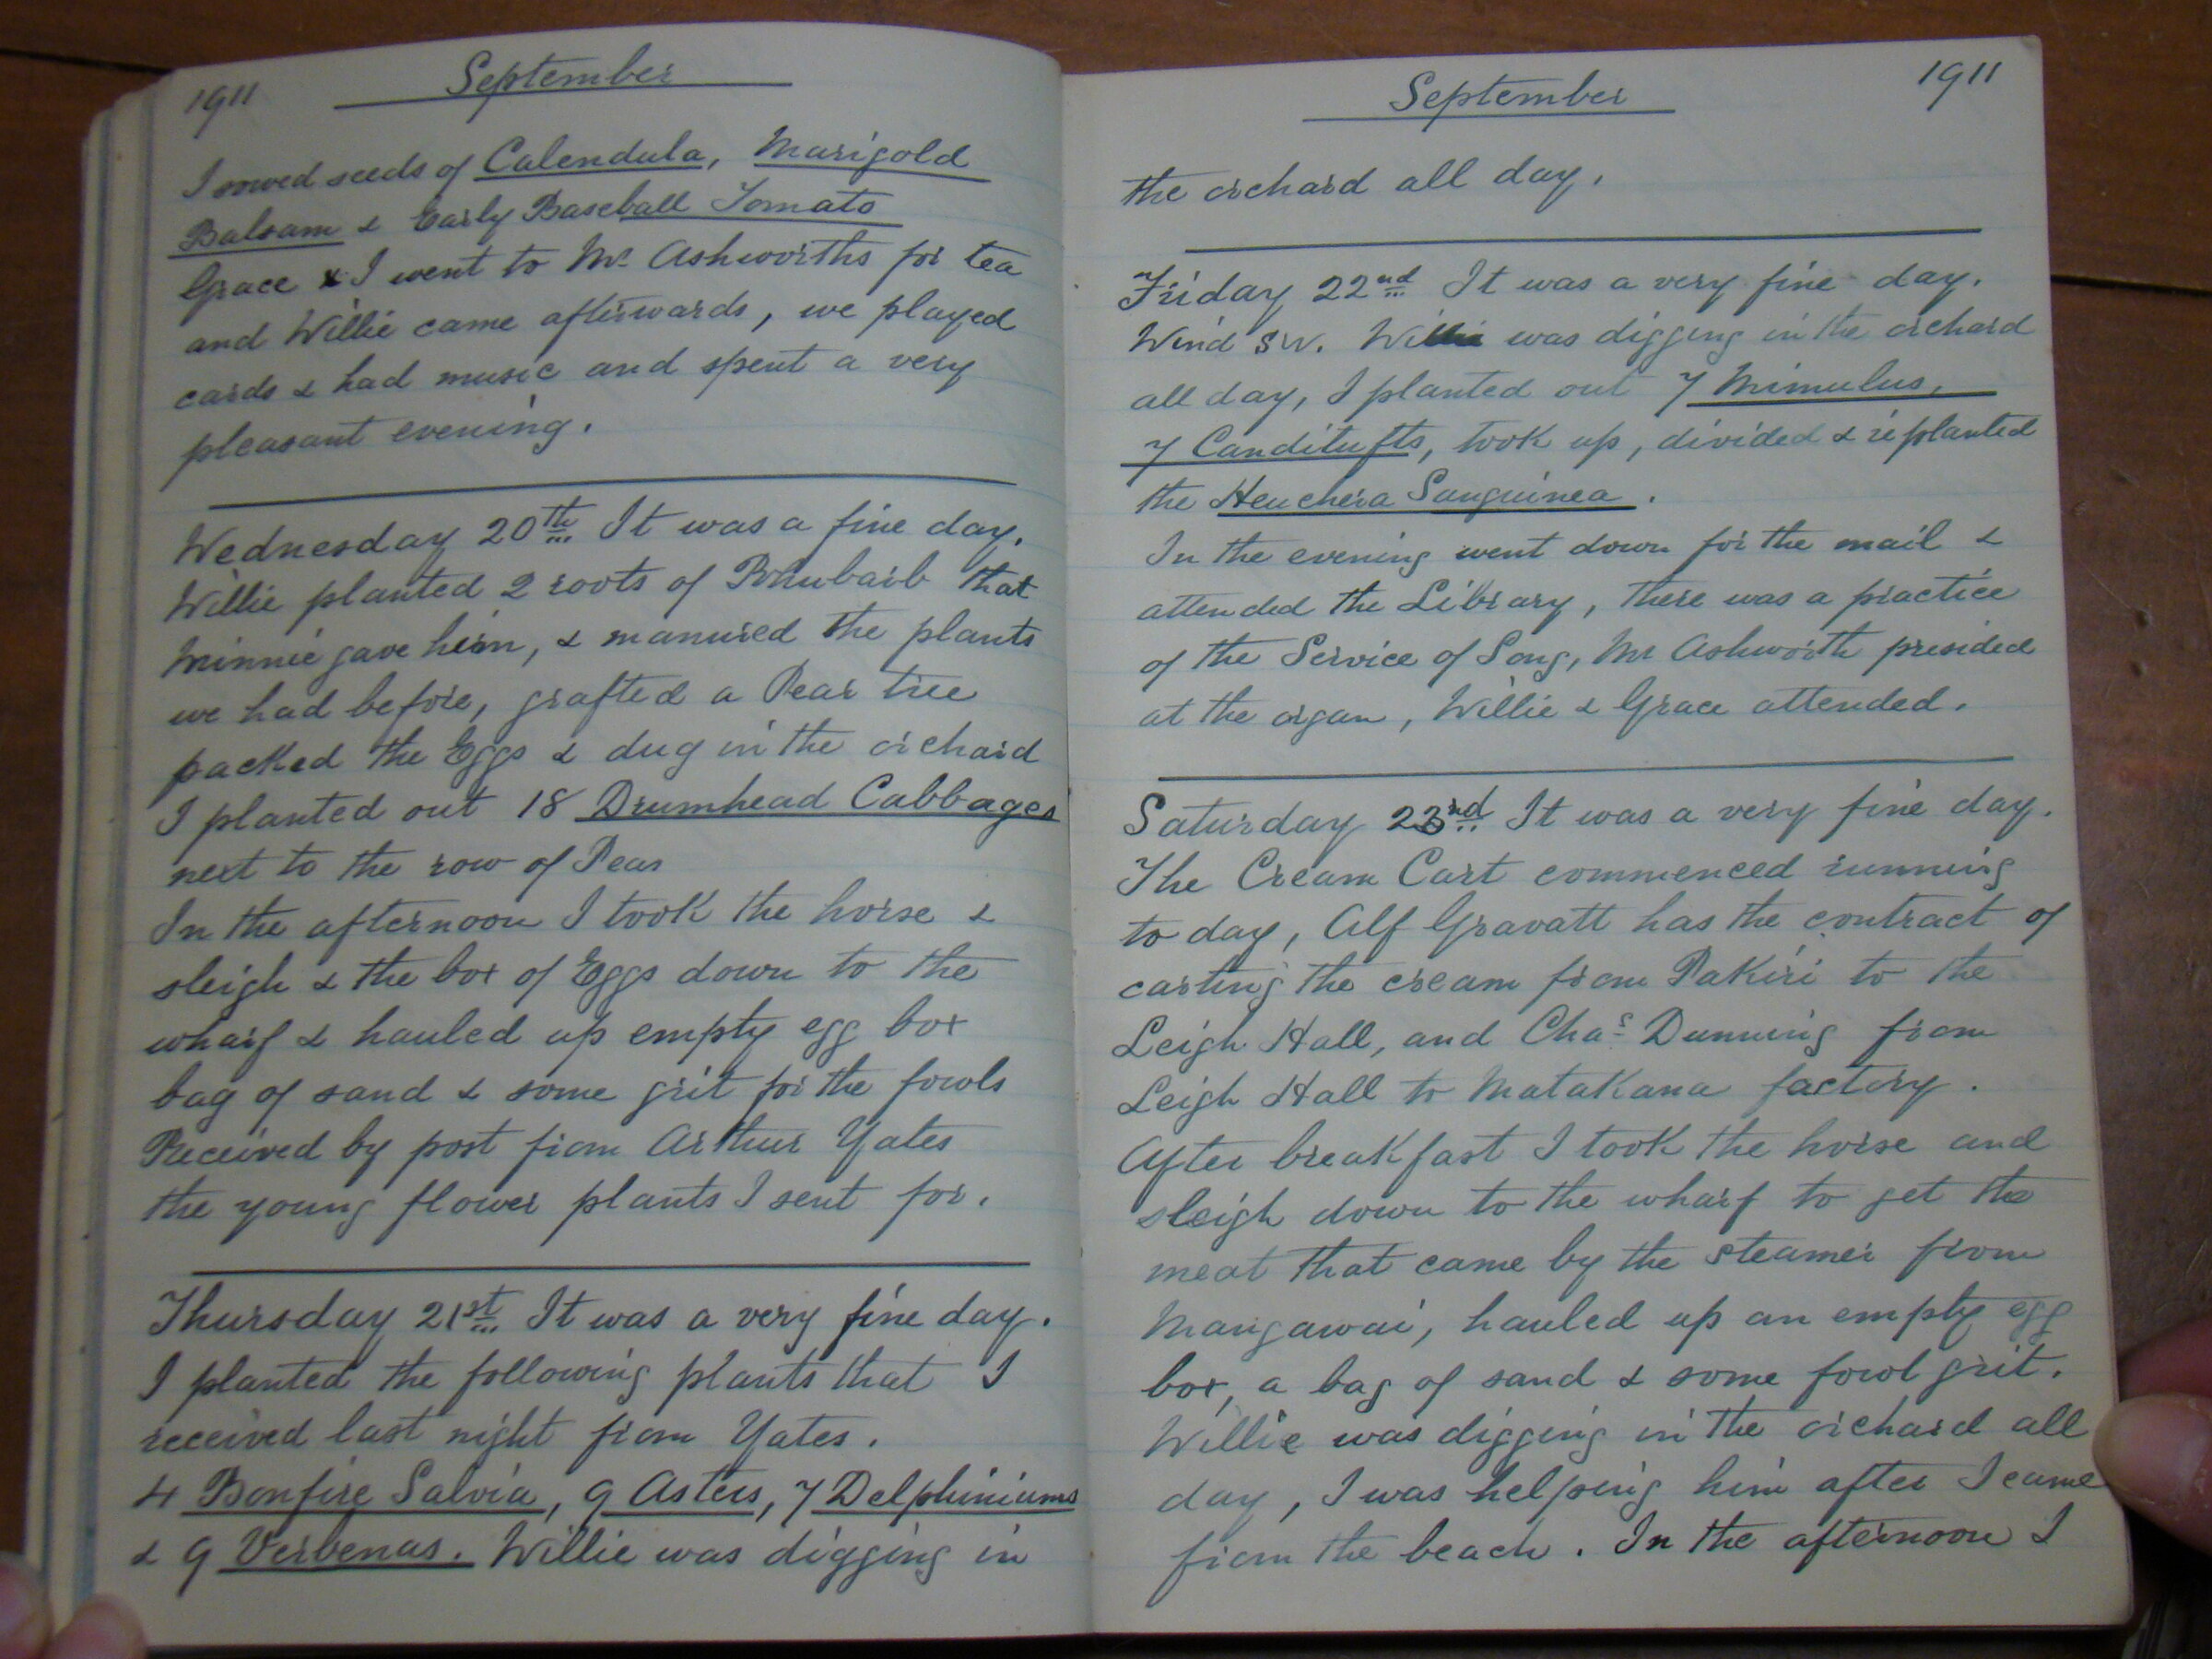 1911 September
I sowed seeds of Calendula, Marigold
Balsam & Early Baseball Tomato
Grace & I went to Mr Ashworths for tea
and Willie came afterwards, we played
cards & had music and spent a very
pleasant evening.
Wednesday 20th It was a fine day.
Willie planted 2 roots of Rhubarb that
Minnie gave him, & manured the plants
we had before, grafted a Pear tree
packed the Eggs & dug in the orchard
I planted out 18 Drumhead Cabbages
next to the row of Peas
In the afternoon I took the horse &
sleigh & the box of Eggs down to the
wharf & hauled up empty egg box
bag of sand & some grit for the fowls
Received by post from Arthur Yates
the young flower plants I sent for.
Thursday 21st It was a very fine day.
I planted the following plants that I
received last night from Yates.
4 Bonfire Salvia, 9 Asters, 7 Delphiniums
& 9 Verbenas. Willie was digging in
September 1911
the orchard all day.
Friday 22nd It was a very fine day.
Wind SW. Willie was digging in the orchard
all day, I planted out 7 Mimulus,
7 Canditufts, took up, divided & replanted
the Heuchera Sanguinea.
In the evening went down for the mail &
attended the Library, there was a practice
of the Service of Song, Mr Ashworth presided
at the organ, Willie & Grace attended.
Saturday 23rd It was a very fine day.
The Cream Cart commenced running
to day, Alf Gravatt has the contract of
carting the cream from Pakiri to the
Leigh Hall, and Chas Dunning from
Leigh Hall to Matakana factory.
After breakfast I took the horse and
sleigh down to the wharf to get the
meat that came by the steamer from
Mangawai, hauled up an empty egg
box, a bag of sand & some fowl grit.
Willie was digging in the orchard all
day, I was helping him after I came
from the beach. In the afternoon I